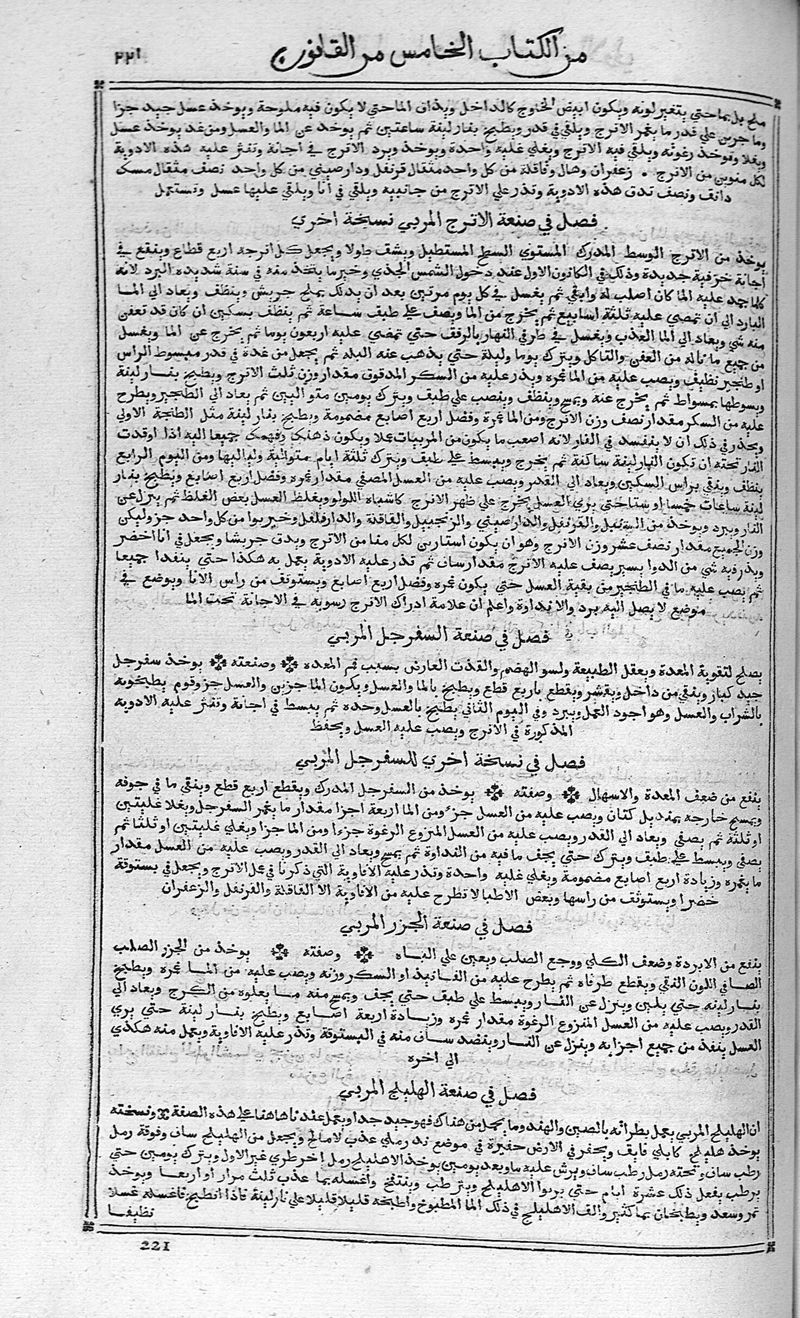 من الكتاب الخامس من القانون
٢٢١
ملح بل بماحتي يتغير لونه ويكون ابيض الخارج كالداخل ويذاق الماحتي لا يكون فيه ملوحة ويوخذ عسل جيد جزا
وما جزين علي قدر ما يغمر الاترج ويلقي في قدر ويطبخ بنار لينة ساعتين ثم يوخذ عن الما والعسل ومن غد يوخذ عسل
ويغلا وتوخذ رغوته ويلقي فيه الاترج ويغلي غليه واحدة ويوخذ ويبرد الاترج في اجانة وتنثر عليه هذه الادوية
لكل منوين من الاترج ٠ زعفران وهال وقاقلة من كل واحد مثقال قرنفل ودارصيني من كل واحد نصف مثقال مسك
دانق ونصف تدق هذه الادوية وتذر علي الاترج من جانبيه ويلقي في انا ويلقي عليها عسل وتستعمل
فصل في صنعة الاترج المربي نسخة اخري
يوخذ من الاترج الوسط المدرك المستوي السطح المستطيل ويشف طولا ويجعل كل اترجه اربع قطاع وينقع في
اجانة خزفية جديدة وذلك في الكانون الاول عند دخول الشمس الجدي وخير ما يتخذ منه في سنة شديده البرد لانه
كلما جد عليه الما كان اصلب له وابقي ثم يغسل في كل يوم مرتين بعد ان يدلك بملح جريش وينظف ويعاد الي المـا
البارد الي ان تمضي عليه ثلثة اسابيع ثم يخرج من الما ويصف علي طبق ساعة ثم ينظف بسكين ان كان قد تعفن
منه شي ويعاد الي الما العذب ويغسل في طرفي النهار بالرفق حتي تمضي عليه اربعون يوما ثم يخرج عن الما ويغسل
من جميع ما ناله من العفن والتاكل ويترك يوما وليلة حتي يذهب عنه البله ثم يجعل من غدة في قدر مبسوط الراس
او طنجير نظيف ويصب عليه من الما غمره ويذر عليه من السكر المدقوق مقدار وزن ثلث الاترج ويطبخ بنار لينة
ويسوطها بمسواط ثم يخرج عنه ويمسح وينظف وينصب علي طبق ويترك يومين متواليين ثم يعاد الي الطنجير ويطرح
عليه من السكر مقدار نصف وزن الاترج ومن الما غمرة وفضل اربع اصابع مضمومة ويطبخ بنار لينة مثل الطبخة الاولي
ويحذر في ذلك ان لا ينفسد في النار لانه اصعب ما يكون من المربيات عملا ويكون ذهنك وفهمك جميعا اليه اذا اوقدت
النار تحته ان تكون النار لينة ساكنة ثم يخرج ويبسط علي طبق ويترك ثلثة ايام متوالية ولياليها ومن اليوم الرابع
ينظف وينقي براس السكين ويعاد الي القدر ويصب عليه من العسل المصفي مقدار غمره وفضل اربع اصابع ويطبخ بنار
لينة ساعات خمسا او ستا حتي يري العسل يخرج علي ظهر الاترج كاشباه اللولو ويغلظ العسل بعض الغلظ ثم ينزل عن
النار ويبرد ويوخذ من السنبل والقرنفل والدارصيني والزنجبيل والقاقلة والدارفلفل وخيربوا من كل واحد جز وليكن
وزن الجميع مقدار نصف عشر وزن الاترج وهو ان يكون استارين لكل منا من الاترج ويدق جريشا ويجعل في انا اخضر
ويذر فيه شي من الدوا يسير يصف عليه الاترج مقدار ساف ثم تذر عليه الادوية يعمل به هكذا حتي ينفدا جميعا
ثم يصب عليه ما في الطنجير من بقية العسل حتي يكون غمره وفضل اربع اصابع ويستوثق من راس الانا ويوضع في
موضع لا يصل اليه برد والا نداوة واعلم ان علامة ادراك الاترج رسوبه في الاجانة تحت الما
فصل في صنعة السفرجل المربي
يصلح لتقوية المعدة ويعقل الطبيعة ولسو الهضم والقذف العارض بسبب فم المعده ❋ وصنعته ❋ يوخذ سفرجل
جيد كبار وينقي من داخل ويقشر ويقطع باربع قطع ويطبخ بالما والعسل ويكون الما جزين والعسل جز وقوم يطبخونه
بالشراب والعسل وهو اجود العمل ويبرد وفي اليوم الثاني يطبخ بالعسل وحده ثم يبسط في اجانة وتنثر عليه الادوية
المذكورة في الاترج ويصب عليه العسل ويحفظ
فصل في نسخة اخري للسفرجل المربي
ينفع من ضعف المعدة والاسهال ❋ وصفته ❋ يوخذ من السفرجل المدرك ويقطع اربع قطع وينقي ما في جوفه
ويمسح خارجه بمنديل كتان ويصب عليه من العسل جزء ومن الما اربعة اجزا مقدار ما يغمر السفرجل ويغلا غليتين
او ثلثة ثم يصفي ويعاد الي القدر ويصب عليه من العسل المنزوع الرغوة جزءا ومن الما جزا ويغلي غليتين او ثلثا ثم
يصفي ويبسط علي طبق ويترك حتي يجف ما فيه من النداوة ثم يمسح ويعاد الي القدر ويصب عليه من العسل مقدار
ما يغمره وزيادة اربع اصابع مضمومة ويغلي غليه واحدة وتذر عليه الافاوية التي ذكرنا في عمل الاترج ويجعل في بستوقة
خضرا ويستوثق من راسها وبعض الاطبا لا تطرح عليه من الافاوية الا القاقلة والقرنفل والزعفران
فصل في صنعة الجزر المربي
ينفع من الابردة وضعف الكلي ووجع الصلب ويعين علي الباه ❋ وصفته ❋ يوخذ من الجزر الصلب
الصافي اللون النقي ويقطع طرفاه ثم يطرح عليه من الفانيد او السكر وزنه ويصب عليه من المـا غمره ويطبخ
بنار لينه حتي يلين وينزل عن النار ويبسط علي طبق حتي يجف ويمسح منه ما يعلوه من الكرج ويعاد الي
القدر ويصب عليه من العسل المنزوع الرغوة مقدار غمره وزيادة اربعة اصابع ويطبخ بنار لينة حتي يري
العسل ينفذ من جميع اجزايه وينزل عن النار وينضد ساف منه في البستوقة وتذر عليه الافاوية ويعمل منه هكذي
الي اخره
فصل في صنعة الهليلج المربي
ان الهليلج المربي يعمل بطراته بالصين والهند وما يحمل من هناك فهو جيد جدا ويعمل عندنا هاهنا علي هذه الصفة ❋ ونسخته
يوخذ هليلج كابلي فايق ويحفر في الارض حفيرة في موضع ند رملي عذب لا مالح ويجعل من الهليلج ساف وفوقة رمل
رطب ساف وتحته رمل رطب ساف ويرش عليه ما وبعد يومين يوخذ الاهليلج رمل اخر طري غير الاول ويترك يومين حتي
يرطب يفعل ذلك عشرة ايام حتي يربوا الاهليلج ويترطب وينتفخ واغسله بما عذب ثلث مرار او اربعا ويوخذ
تمر وسعد ويطبخان بما كثير والق الاهليلج في ذلك الما المطبوخ واطبخه قليلا قليلا علي نار لينة فاذا انطبخ فاغسله غسلا
نظيفا
221